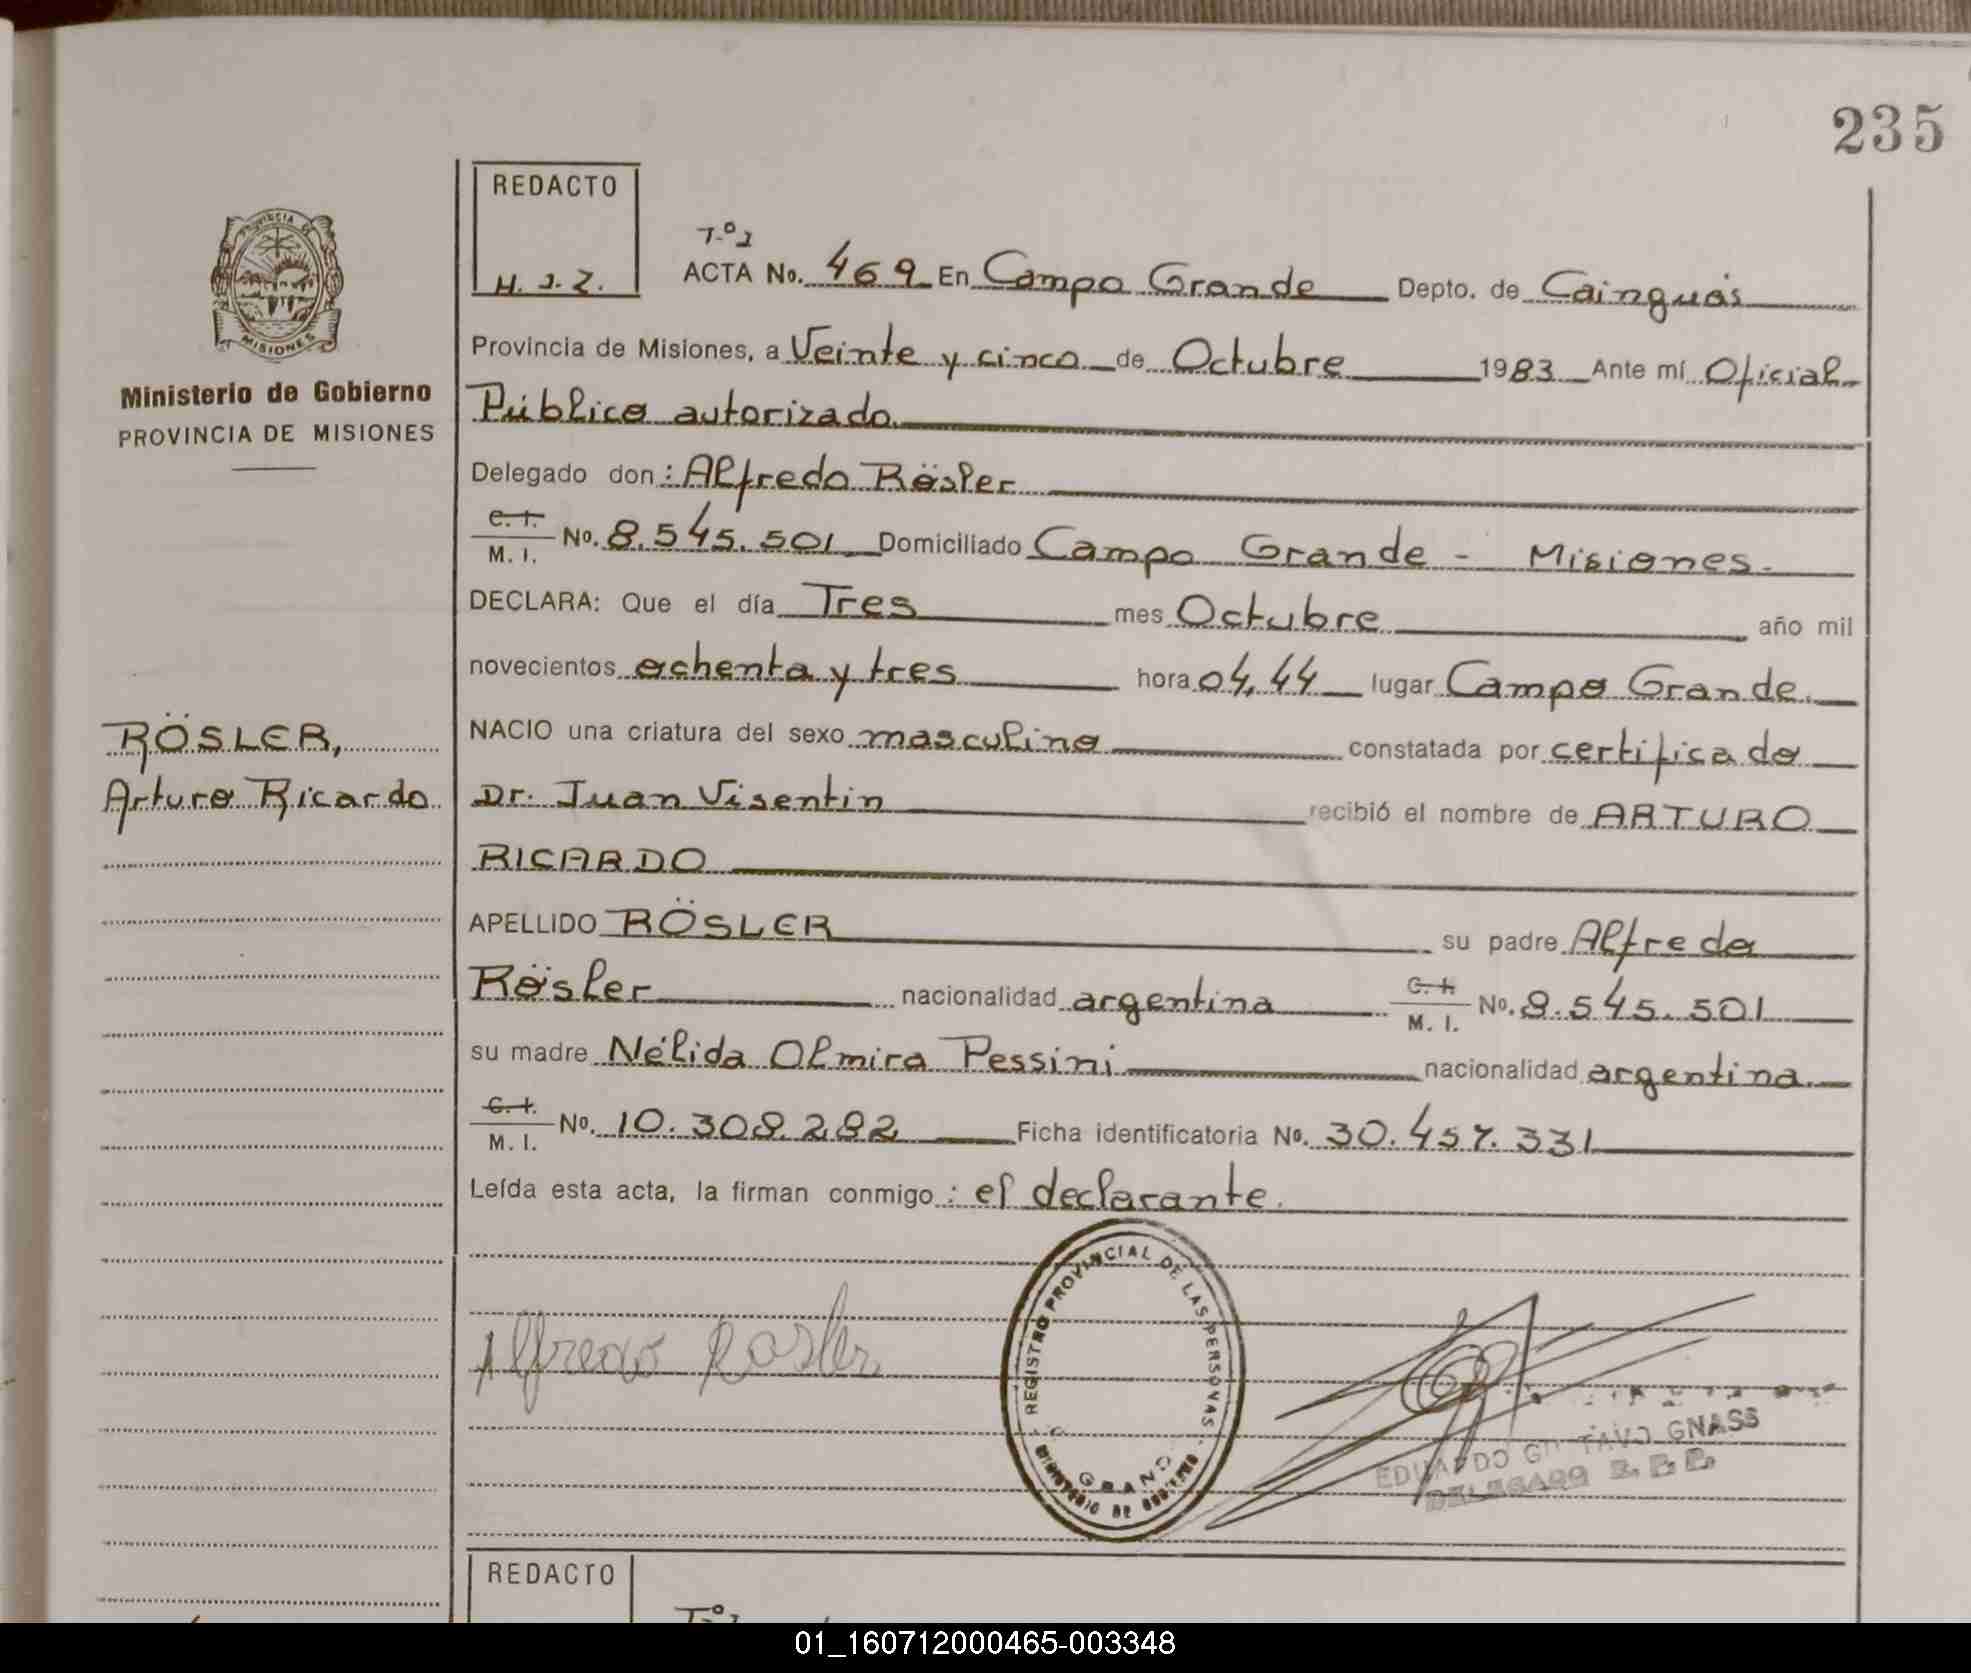 235
REDACTO
H. J. Z.
PROVINCIA DE
MISIONES
Ministerio de Gobierno
PROVINCIA DE MISIONES
RÖSLER,
Arturo Ricardo
Tº 1
ACTA No. 469 En Campo Grande Depto. de Cainguás
Provincia de Misiones, a Veinte y cinco de Octubre 1983 Ante mí Oficial
Público autorizado
Delegado don: Alfredo Rösler
C. I. M. I. No. 8.545.501 Domiciliado Campo Grande - Misiones.
DECLARA: Que el día Tres mes Octubre año mil
novecientos ochenta y tres hora 04,44 lugar Campo Grande.
NACIO una criatura del sexo masculino constatada por certificado
Dr. Juan Visentin recibió el nombre de ARTURO
RICARDO
APELLIDO RÖSLER su padre Alfredo
Rösler nacionalidad argentina C. I. M. I. No. 8.545.501
su madre Nélida Olmira Pessini nacionalidad argentina.
C. I. M. I. No. 10.308.282 Ficha identificatoria No. 30.457.331
Leída esta acta, la firman conmigo: el declarante.
Alfredo Rosler
REGISTRO PROVINCIAL DE LAS PERSONAS
GRAND
MINISTERIO DE GOBIERNO
EDUARDO GUSTAVO GNASS
DELEGADO
REDACTO
Tº 1
01_160712000465-003348